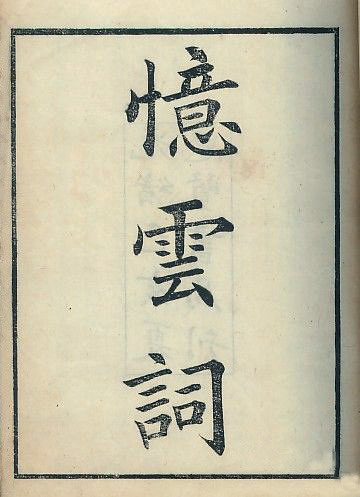 憶雲詞